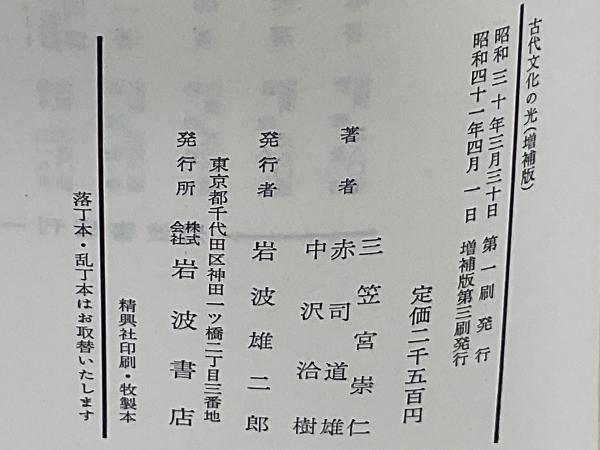 古代文化の光(増補版)
昭和三十年三月三十日 第一刷発行
昭和四十一年四月一日 増補版第三刷発行
定価二千五百円
著者 三笠宮崇仁
赤司道雄
中沢洽樹
発行者 岩波雄二郎
東京都千代田区神田一ツ橋二丁目三番地
発行所 株式会社 岩波書店
精興社印刷・牧製本
落丁本・乱丁本はお取替いたします